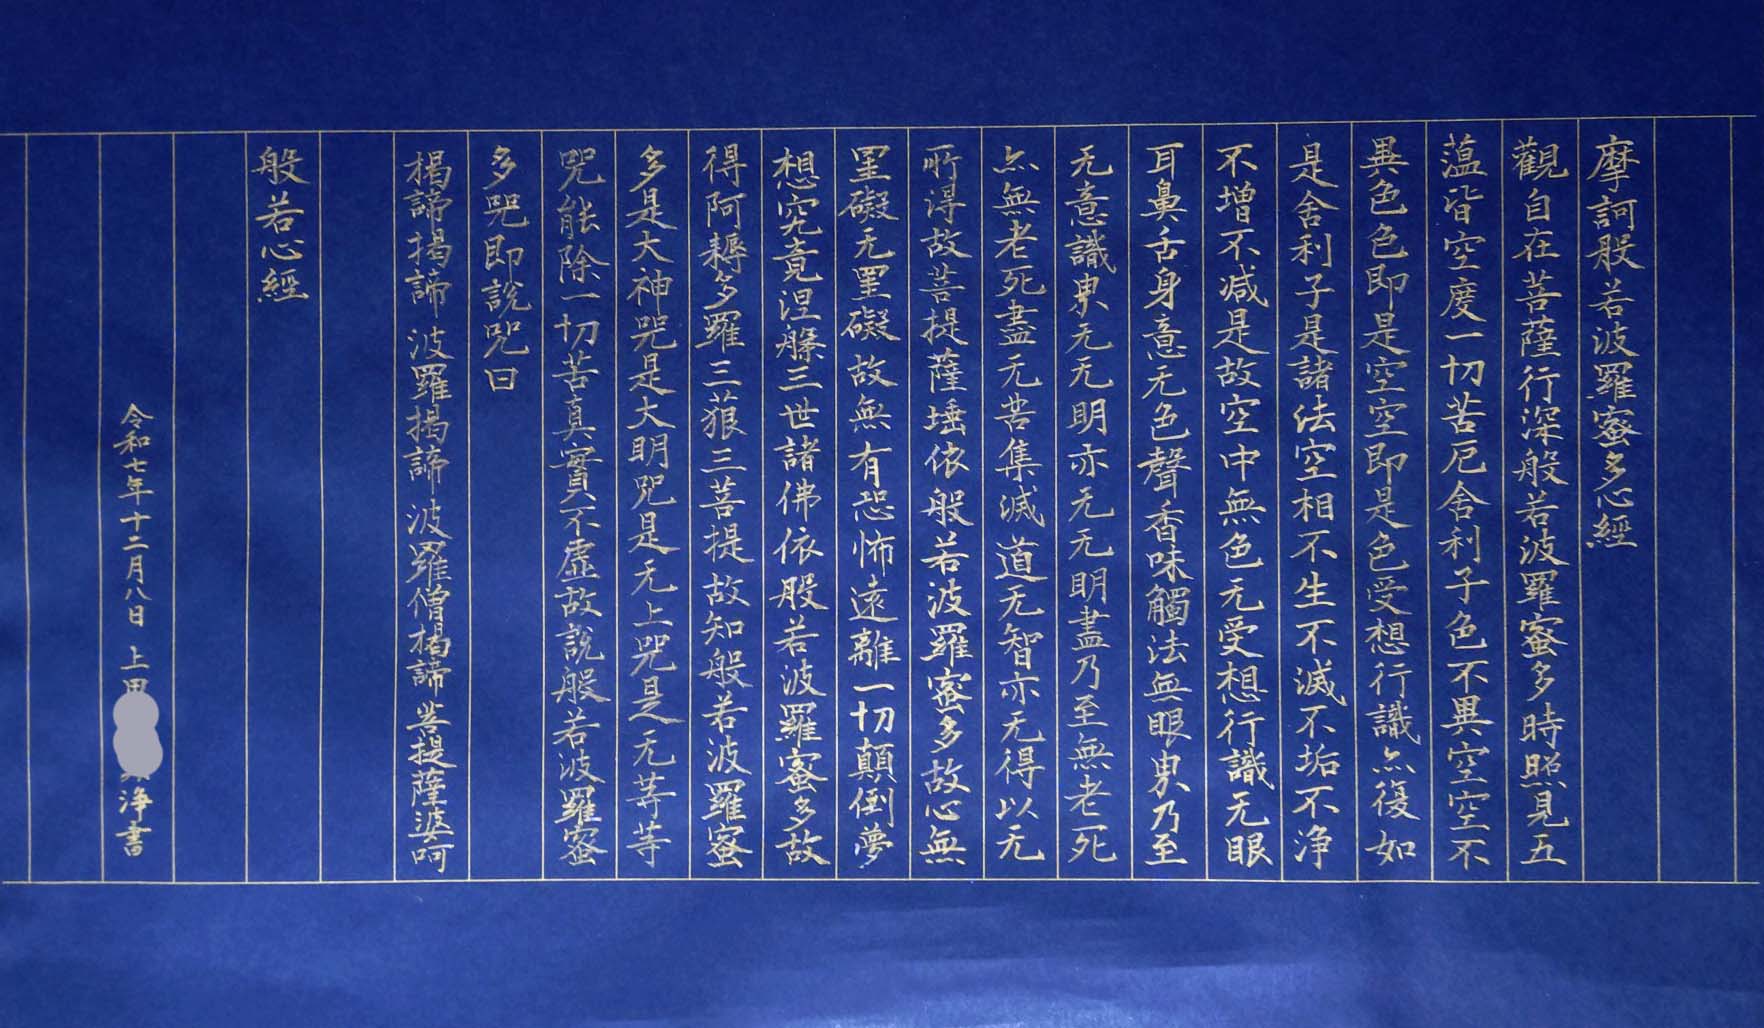 摩訶般若波羅蜜多心經
觀自在菩薩行深般若波羅蜜多時照見五
薀皆空度一切苦厄舍利子色不異空空不
異色色即是空空即是色受想行識亦復如
是舍利子是諸法空相不生不滅不垢不浄
不增不减是故空中無色无受想行識无眼
耳鼻舌身意无色聲香味觸法無眼界乃至
无意識界无无明亦无无明盡乃至無老死
亦無老死盡无苦集滅道无智亦无得以无
所得故菩提薩埵依般若波羅蜜多故心無
罣礙无罣礙故無有恐怖遠離一切顛倒夢
想究竟涅槃三世諸佛依般若波羅蜜多故
得阿耨多羅三藐三菩提故知般若波羅蜜
多是大神咒是大明咒是无上咒是无等等
咒能除一切苦真實不虛故說般若波羅蜜
多咒即說咒曰
揭諦揭諦 波羅揭諦 波羅僧揭諦 菩提薩婆呵
般若心經
令和七年十二月八日 上 浄書